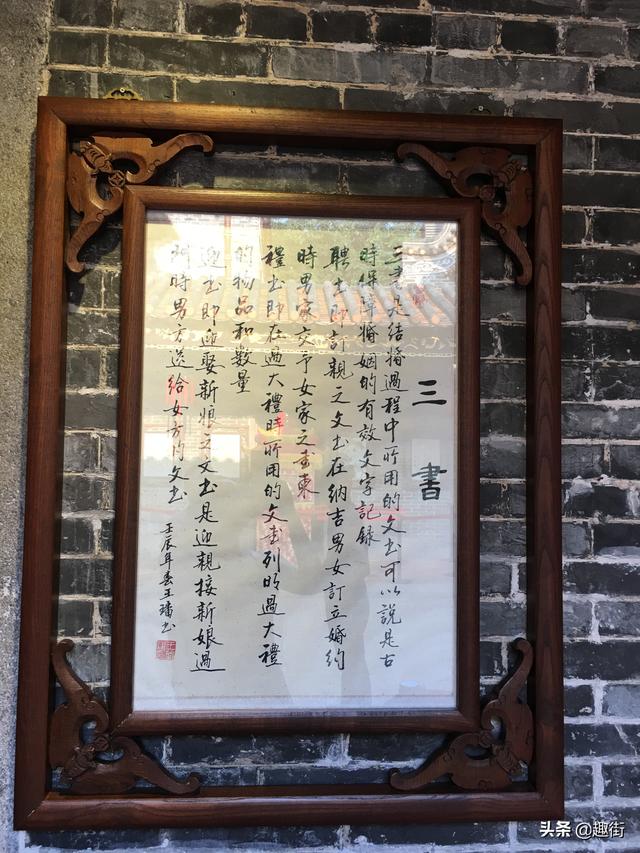 三書
三書是結婚過程中所用的文书可以說是古
時保障婚姻的有效文字記録
聘书即訂親之文书在納吉男女訂立婚約
時男家交予女家之書柬
禮书即在過大禮時所用的文書列明過大禮
的物品和數量
迎书即迎娶新娘之文书是迎親接新娘過
門時男方送給女方的文书
壬辰年春王璠书
头条 @趣街